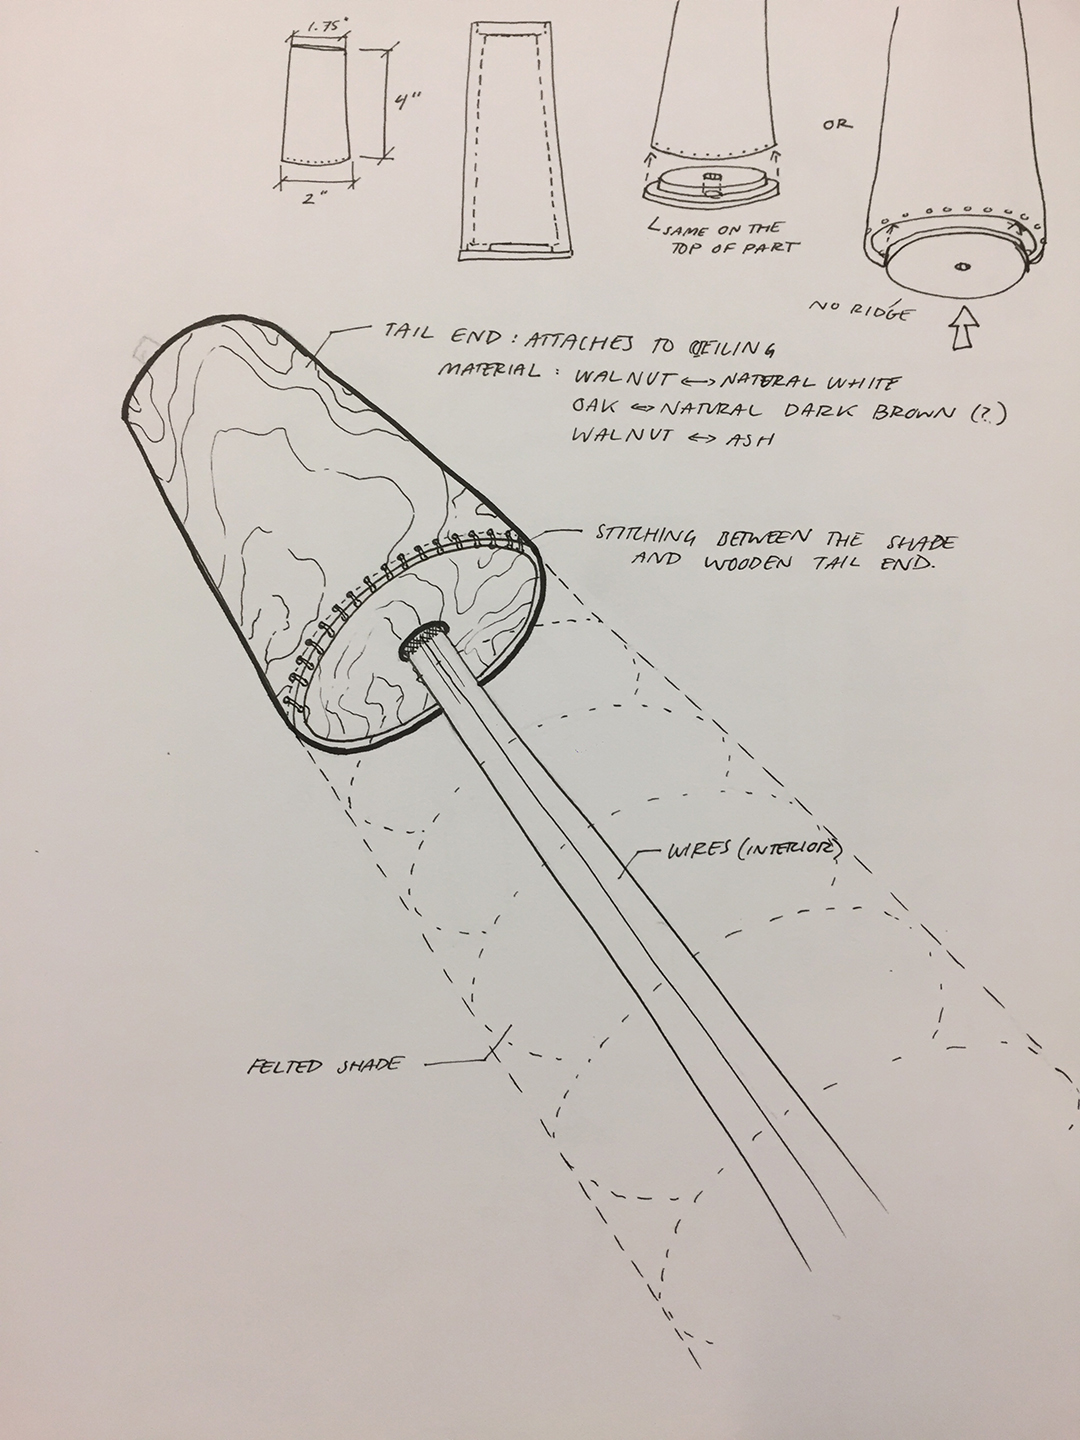 1.75"
4"
2"
SAME ON THE
TOP OF PART
OR
NO RIDGE
TAIL END : ATTACHES TO CEILING
MATERIAL : WALNUT ↔ NATURAL WHITE
OAK ↔ NATURAL DARK BROWN (?)
WALNUT ↔ ASH
STITCHING BETWEEN THE SHADE
AND WOODEN TAIL END.
WIRES (INTERIOR)
FELTED SHADE